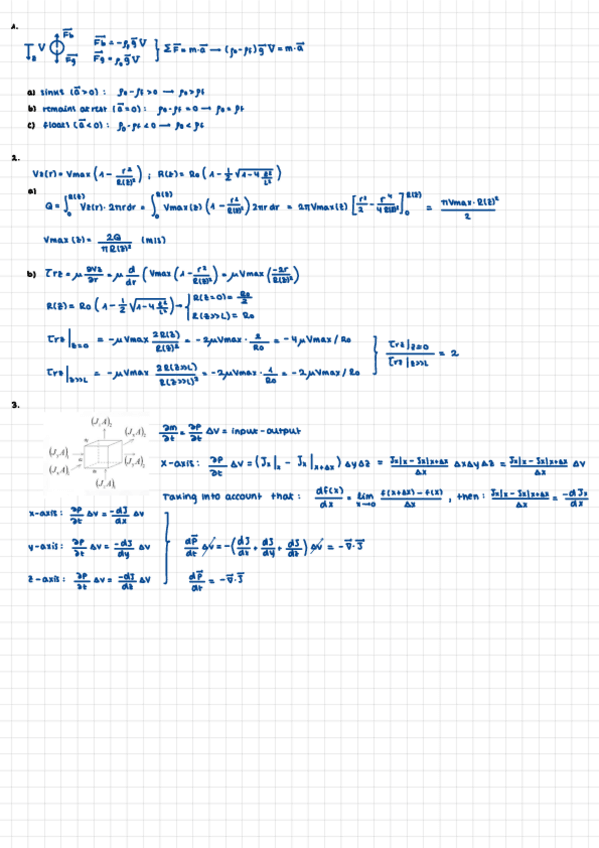 1.
z V F⃗b F⃗g F⃗b = -ρf g⃗ V } Σ F⃗ = m·a⃗ → (ρo-ρf) g⃗ V = m·a⃗
F⃗g = ρo g⃗ V
a) sinks (a⃗>0) : ρo-ρf >0 → ρo>ρf
b) remains at rest (a⃗=0) : ρo-ρf =0 → ρo = ρf
c) floats (a⃗<0) : ρo-ρf <0 → ρo < ρf
2.
Vz(r) = Vmax (1 - r²/R(z)²) ; R(z) = Ro (1 - 1/2 √(1-4 z²/L²))
a) Q = ∫₀^R(z) Vz(r)·2πr dr = ∫₀^R(z) Vmax(z) (1 - r²/R(z)²) 2πr dr = 2πVmax(z) [r²/2 - r⁴/4R(z)²]₀^R(z) = πVmax·R(z)²/2
Vmax(z) = 2Q/πR(z)² (m/s)
b) τrz = μ ∂Vz/∂r = μ d/dr (Vmax (1 - r²/R(z)²)) = μVmax (-2r/R(z)²)
R(z) = Ro (1 - 1/2 √(1-4 z²/L²)) → { R(z=0) = Ro/2
R(z>>L) = Ro
τrz|z=0 = -μVmax 2R(z)/R(z)² = -2μVmax · 2/Ro = -4μVmax/Ro } τrz|z=0 / τrz|z>>L = 2
τrz|z>>L = -μVmax 2R(z>>L)/R(z>>L)² = -2μVmax · 1/Ro = -2μVmax/Ro
3.
∂m/∂t = ∂ρ/∂t ΔV = input - output
x-axis: ∂ρ/∂t ΔV = (Jx|x - Jx|x+Δx) ΔyΔz = Jx|x - Jx|x+Δx / Δx ΔxΔyΔz = Jx|x - Jx|x+Δx / Δx ΔV
Taking into account that : df(x)/dx = lim x→0 f(x+Δx) - f(x) / Δx , then : Jx|x - Jx|x+Δx / Δx = -dJx/dx
x-axis: ∂ρ/∂t ΔV = -dJ/dx ΔV
y-axis: ∂ρ/∂t ΔV = -dJ/dy ΔV } dρ⃗/dt ΔV = -(dJ/dx + dJ/dy + dJ/dz) ΔV = -∇⃗·J⃗
z-axis: ∂ρ/∂t ΔV = -dJ/dz ΔV dρ⃗/dt = -∇⃗·J⃗